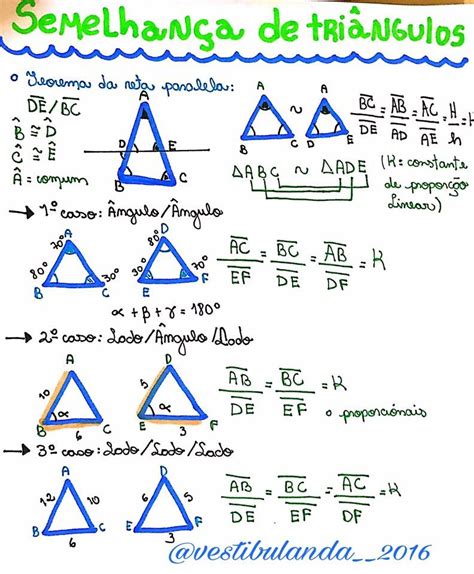 Semelhança de triângulos
o Teorema da reta paralela:
DE / BC
B̂ ≅ D̂
Ĉ ≅ Ê
Â = comum
A
D E
B C
A ~ A
B C D E
BC/DE = AB/AD = AC/AE = H/h = K
ΔABC ~ ΔADE
(K = constante
de proporção
linear)
→ 1º caso: Ângulo/Ângulo
A 70° 80° 30° B C
D 80° 70° E F
AC/EF = BC/DE = AB/DF = K
α + β + γ = 180°
→ 2º caso: Lado/Ângulo/Lado
A 10 α B 6 C
D 5 α E 3 F
AB/DE = BC/EF = K
o proporcionais
→ 3º caso: Lado/Lado/Lado
A 12 10 B 6 C
D 6 5 E 3 F
AB/DE = BC/EF = AC/DF = K
@vestibulanda__2016